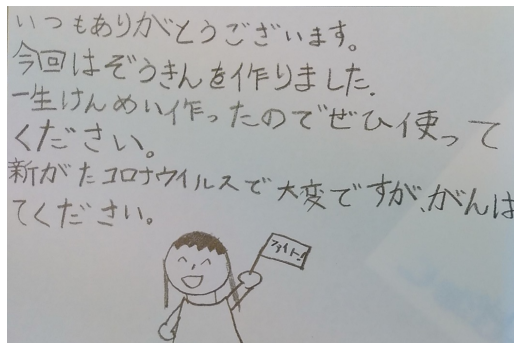 いつもありがとうございます。
今回はぞうきんを作りました.
一生けんめい作ったのでぜひ使って
ください。
新がたコロナウイルスで大変ですが、がんば
てください。
ファイト!